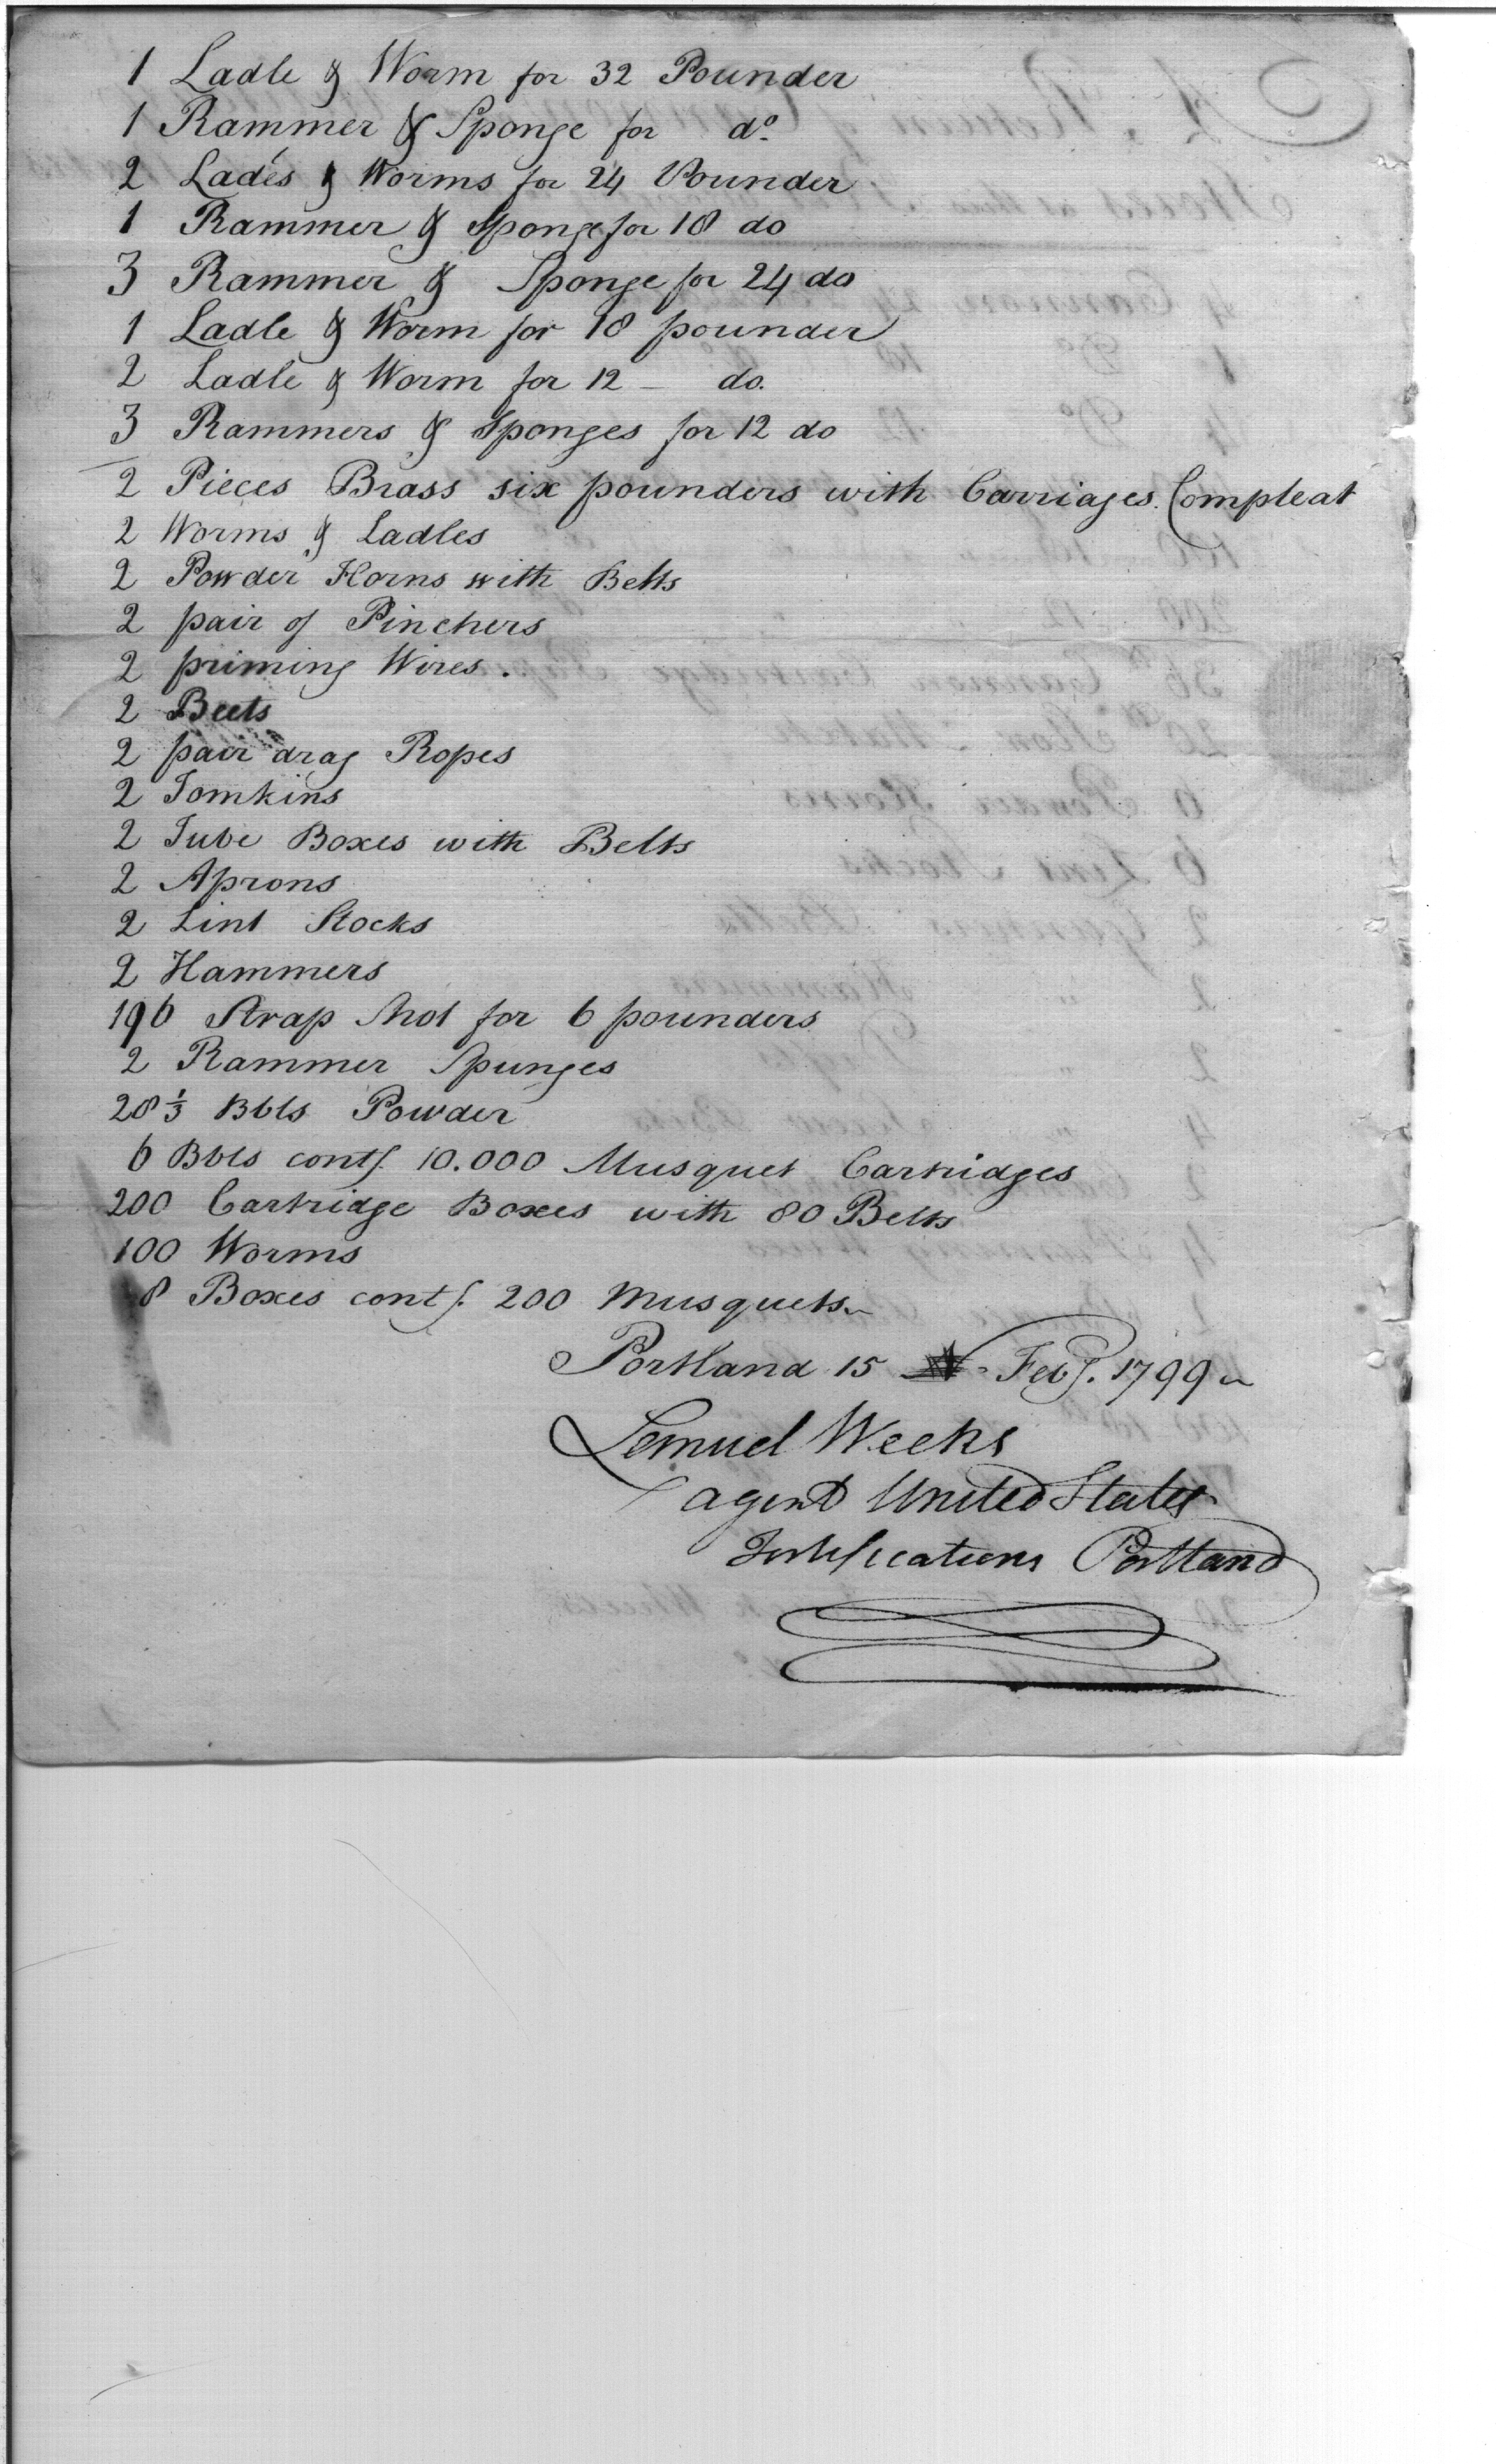 1 Ladle & Worm for 32 Pounder
1 Rammer & Sponge for do.
2 Lades & Worms for 24 Pounder
1 Rammer & Sponge for 18 do
3 Rammer & Sponge for 24 do
1 Ladle & Worm for 18 pounder
2 Ladle & Worm for 12 - do.
3 Rammers & Sponges for 12 do
2 Pieces Brass six pounders with Carriages. Compleat
2 Worms & Ladles
2 Powder Horns with Belts
2 pair of Pinchers
2 priming Wires.
2 Beets
2 pair drag Ropes
2 Tomkins
2 Tube Boxes with Belts
2 Aprons
2 Lint Stocks
2 Hammers
196 Strap Shot for 6 pounders
2 Rammer Spunges
28 1/3 Bbls Powder
6 Bbls contg. 10.000 Musquet Cartridges
200 Cartridge Boxes with 80 Belts
100 Worms
8 Boxes contg. 200 Musquets
Portland 15 Feby. 1799
Lemuel Weeks
agent United States
Fortifications Portland